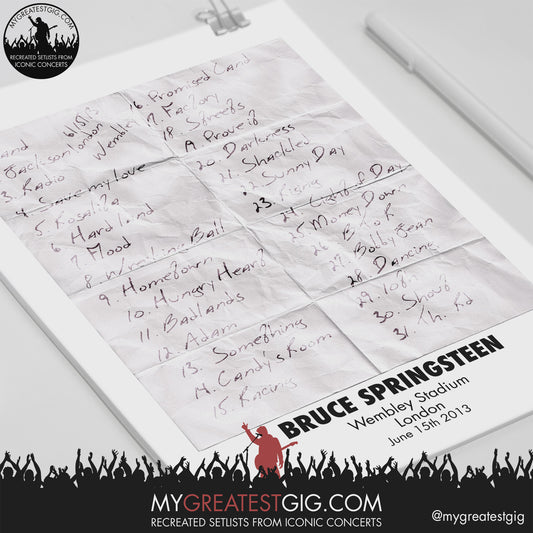 MYGREATESTGIG.COM
RECREATED SETLISTS FROM
ICONIC CONCERTS
6/15/13
London
Wembley
and
Jackson
3. Radio
4. Save my love
5. Rosalita
6 Hard land
7. Flood
8. Wrecking Ball
9. Hometown
10. Hungry Heart
11. Badlands
12. Adam
13. Somethings
14. Candy's Room
15. Racing
16 Promised Land
17. Factory
18. Streets
19. Prove it
20. Darkness
21. Shackled
22. Sunny Day
23. Rising
24. Light of Day
25. Money Down
26.
27. Bobby Jean
28. Dancing
29. 10th
30. Shout
31. Th. Rd
BRUCE SPRINGSTEEN
Wembley Stadium
London
June 15th 2013
MYGREATESTGIG.COM
RECREATED SETLISTS FROM ICONIC CONCERTS
@mygreatestgig